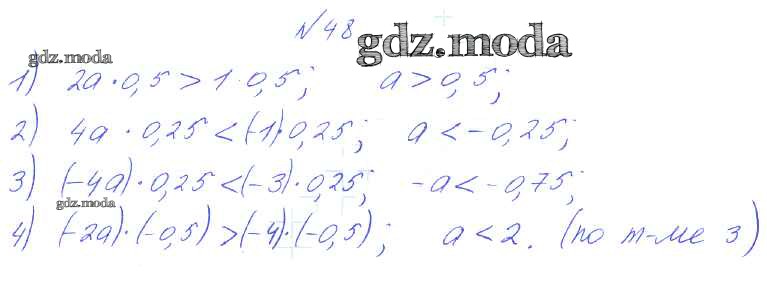 №48
gdz.moda
gdz.moda
1) 2a·0,5 > 1·0,5; a > 0,5;
2) 4a · 0,25 < (-1)·0,25; a < -0,25;
3) (-4a)·0,25 < (-3)·0,25; -a < -0,75;
gdz.moda
4) (-2a)·(-0,5) > (-4)·(-0,5); a < 2. (по т-ме 3)